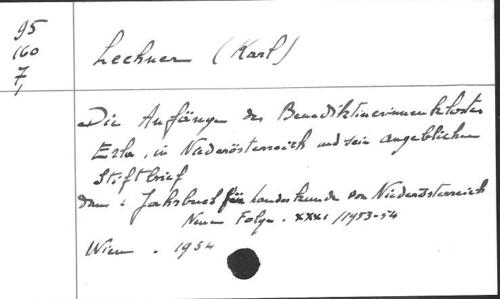 95
160
7
Lechner (Karl)
Die Anfänge des Benediktinerinnenklosters
Erla, in Niederösterreich und sein angeblicher
Stiftbrief
dans : Jahrbuch für Landeskunde von Niederösterreich
Neue Folge. XXXI /1953-54
Wien. 1954